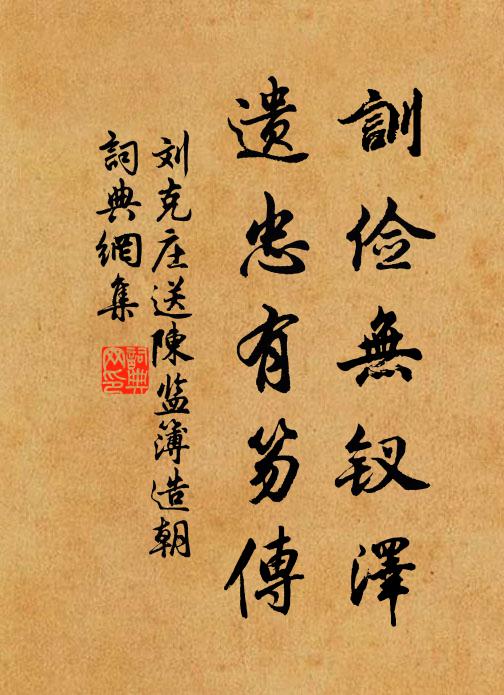 訓俭無钗澤
遗忠有笏傳
刘克庄送陳监簿造朝
詞典網集
詞典
网印